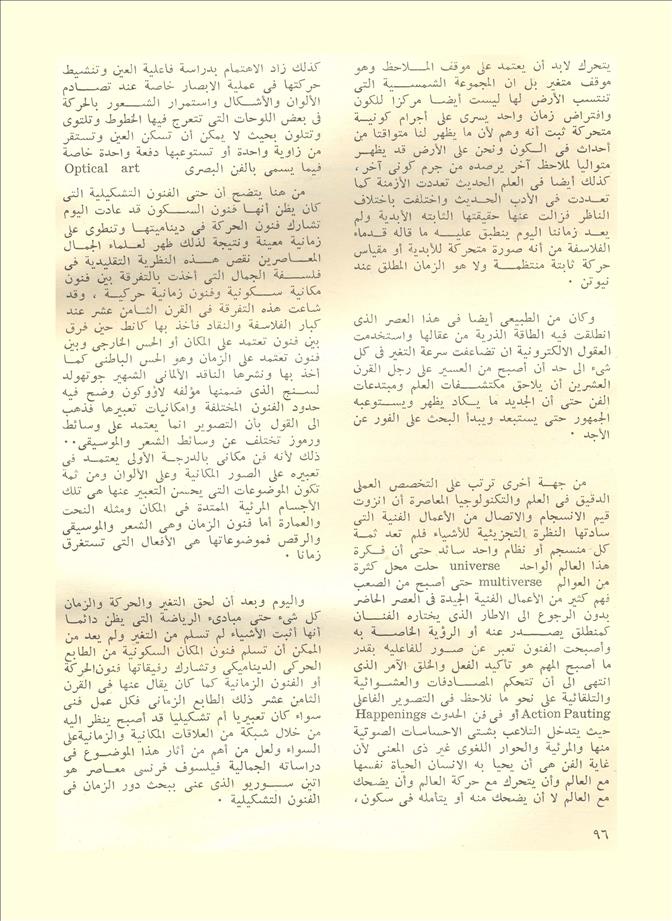 يتحرك لابد أن يعتمد على موقف المــلاحظ وهو
موقف متغير بل ان المجموعة الشمســــية التى
تنتسب الأرض لها ليست أيضــا مركزا للكون
وافتراض زمان واحد يسرى على أجرام كونيــة
متحركة ثبت أنه وهم لأن ما يظهر لنا متواقتا من
أحداث فى الــكون ونحن على الأرض قد يظهــر
متواليا لملاحظ آخر يرصده من جرم كونى آخر ،
كذلك أيضا فى العلم الحديث تعددت الأزمنة كما
تعــددت فى الأدب الحــديث واختلفت باختلاف
الناظر فزالت عنها حقيقتها الثابته الأبدية ولم
يعــد زماننا اليوم ينطبق عليــــه ما قاله قــدماء
الفلاسفة من أنه صورة متحركة للأبدية أو مقياس
حركة ثابتة منتظمــــة ولا هو الزمان المطلق عند
نيوتن .
وكان من الطبيعى أيضا فى هذا العصر الذى
انطلقت فيه الطاقة الذرية من عقالها واستخدمت
العقول الالكترونية ان تضاعفت سرعة التغير فى كل
شىء الى حد أن أصبح من العسير على رجل القرن
العشرين أن يلاحق مكتشــــفات العلم ومبتدعات
الفن حتى أن الجديد ما يــكاد يظهر ويســــتوعبه
الجمهور حتى يستبعد ويبدأ البحث على الفور عن
الأجد .
من جهــة أخرى ترتب على التخصص العملى
الدقيق فى العلم والتكنولوجيا المعاصرة أن انزوت
قيم الانسجام والاتصال من الأعمال الفنية التى
سادتها النظرة التجزيئية للأشياء فلم تعد ثمــة
كل منسجم أو نظام واحد سائد حتى أن فــكرة
هذا العالم الواحد universe حلت محل كثرة
من العوالم multiverse حتى أصبح من الصعب
فهم كثير من الأعمال الفنية الجيدة فى العصر الحاضر
بدون الرجوع الى الاطار الذى يختاره الفنــــان
كمنطلق يصــــدر عنه أو الرؤية الخاصــة به
وأصبحت الفنون تعبر عن صــور للفاعليه بقدر
ما أصبح المهم هو تأكيد الفعل والخلق الأمر الذى
انتهى الى أن تتحكم المصــادفات والعشــوائية
والتلقائية على نحو ما نلاحظ فى التصوير الفاعلى
Action Pauting أو فى فن الحدوث Happenings
حيث يتدخل التلاعب بشتى الاحساسات الصوتية
منها والمرئية والحوار اللغوى غير ذى المعنى لأن
غاية الفن هى أن يحيا به الانسان الحياة نفسها
مع العالم وأن يتحرك مع حركة العالم وأن يضحك
مع العالم لا أن يضحك منه أو يتأمله فى سكون ،
كذلك زاد الاهتمام بدراسة فاعلية العين وتنشيط
حركتها فى عملية الابصار خاصة عند تصــادم
الألوان والأشــكال واستمرار الشــــعور بالحركة
فى بعض اللوحات التى تتعرج فيها الخطوط وتلتوى
وتتلون بحيث لا يمكن أن تسكن العين وتستقر
من زاوية واحدة أو تستوعبها دفعة واحدة خاصة
فيما يسمى بالفن البصرى Optical art
من هنا يتضح أن حتى الفنون التشكيلية التى
كان يظن أنهــا فنون الســــكون قد عادت اليوم
تشارك فنون الحركة فى ديناميتهــا وتنطوى على
زمانية معينة ونتيجة لذلك ظهر لعلــماء الجمــال
المعــاصرين نقص هــذه النظرية التقليدية فى
فلســــفة الجمال التى أخذت بالتفرقة بين فنون
مكانية ســكونية وفنون زمانية حركيــة ، وقد
شاعت هذه التفرقة فى القرن الثــامن عشر عند
كبار الفلاسفة والنقاد فأخذ بها كانط حين فرق
بين فنون تعتمد على المكان أو الحس الخارجى وبين
فنون تعتمد على الزمان وهو الحس الباطنى كمــا
أخذ بها ونشرها الناقد الألمانى الشهير جوتهولد
لســنج الذى ضمنها مؤلفه لاؤوكون وضح فيه
حدود الفنون المختلفة وامكانيات تعبيرها فذهب
الى القول بأن التصوير انما يعتمد على وسائط
ورموز تختلف عن وسائط الشعر والموسيقى ..
ذلك لأنه فن مكانى بالدرجــة الأولى يعتمــد فى
تعبيره على الصور المكانية وعلى الألوان ومن ثمة
تكون الموضوعات التى يحسن التعبير عنها هى تلك
الأجسام المرئية الممتدة فى المكان ومثله النحت
والعمارة أما فنون الزمان وهى الشعر والموسيقى
والرقص فموضوعاتها هى الأفعال التى تستغرق
زمانا .
واليوم وبعد أن لحق التغير والحركة والزمان
كل شىء حتى مبادىء الرياضة التى يظن دائمــا
أنها أثبت الأشياء لم تسلم من التغير ولم يعد من
الممكن أن تسلم فنون المكان السكونية من الطابع
الحركى الديناميكى وتشارك رفيقاتها فنون الحركة
أو الفنون الزمانية كما كان يقال عنها فى القرن
الثامن عشر ذلك الطابع الزمانى فكل عمل فنى
سواء كان تعبيريا أم تشكيليا قد أصبح ينظر اليه
من خلال شبكة من العلاقات المكانية والزمانية على
السواء ولعل من أهم من أثار هذا الموضــوع فى
دراساته الجمالية فيلسوف فرنسى معــاصر هو
اتين ســوريو الذى عنى ببحث دور الزمان فى
الفنون التشكيلية .
٩٦